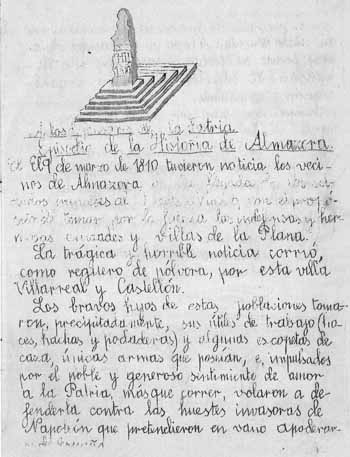 de la Patria
Episodio de la Historia de Almazora
El 9 de marzo de 1810 tuvieron noticia los veci-
nos de Almazora de la llegada de
por la fuerza las indefensas y her-
mosas ciudades y villas de la Plana.
La trágica y horrible noticia corrió,
como reguero de pólvora, por esta villa
Villarreal y Castellón.
Los bravos hijos de estas poblaciones toma-
ron, precipitadamente, sus útiles de trabajo (ho-
ces, hachas y podaderas) y algunas escopetas de
caza, únicas armas que poseían, e, impulsados
por el noble y generoso sentimiento de amor
a la Patria, más que correr, volaron a de-
fenderla contra las huestes invasoras de
Napoleón que pretendieron en vano apoderar-